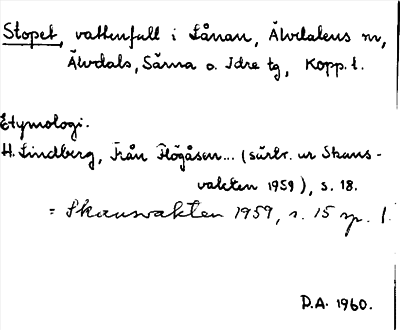 Stopet, vattenfall i Lånan, Älvdalens sn,
Älvdals, Särna o. Idre tg, Kopp. l.
Etymologi.
H. Lindberg, Från Högåsen... (särtr. ur Skans-
vakten 1959), s. 18.
= Skansvakten 1959, s. 15 sp. 1.
D.A. 1960.